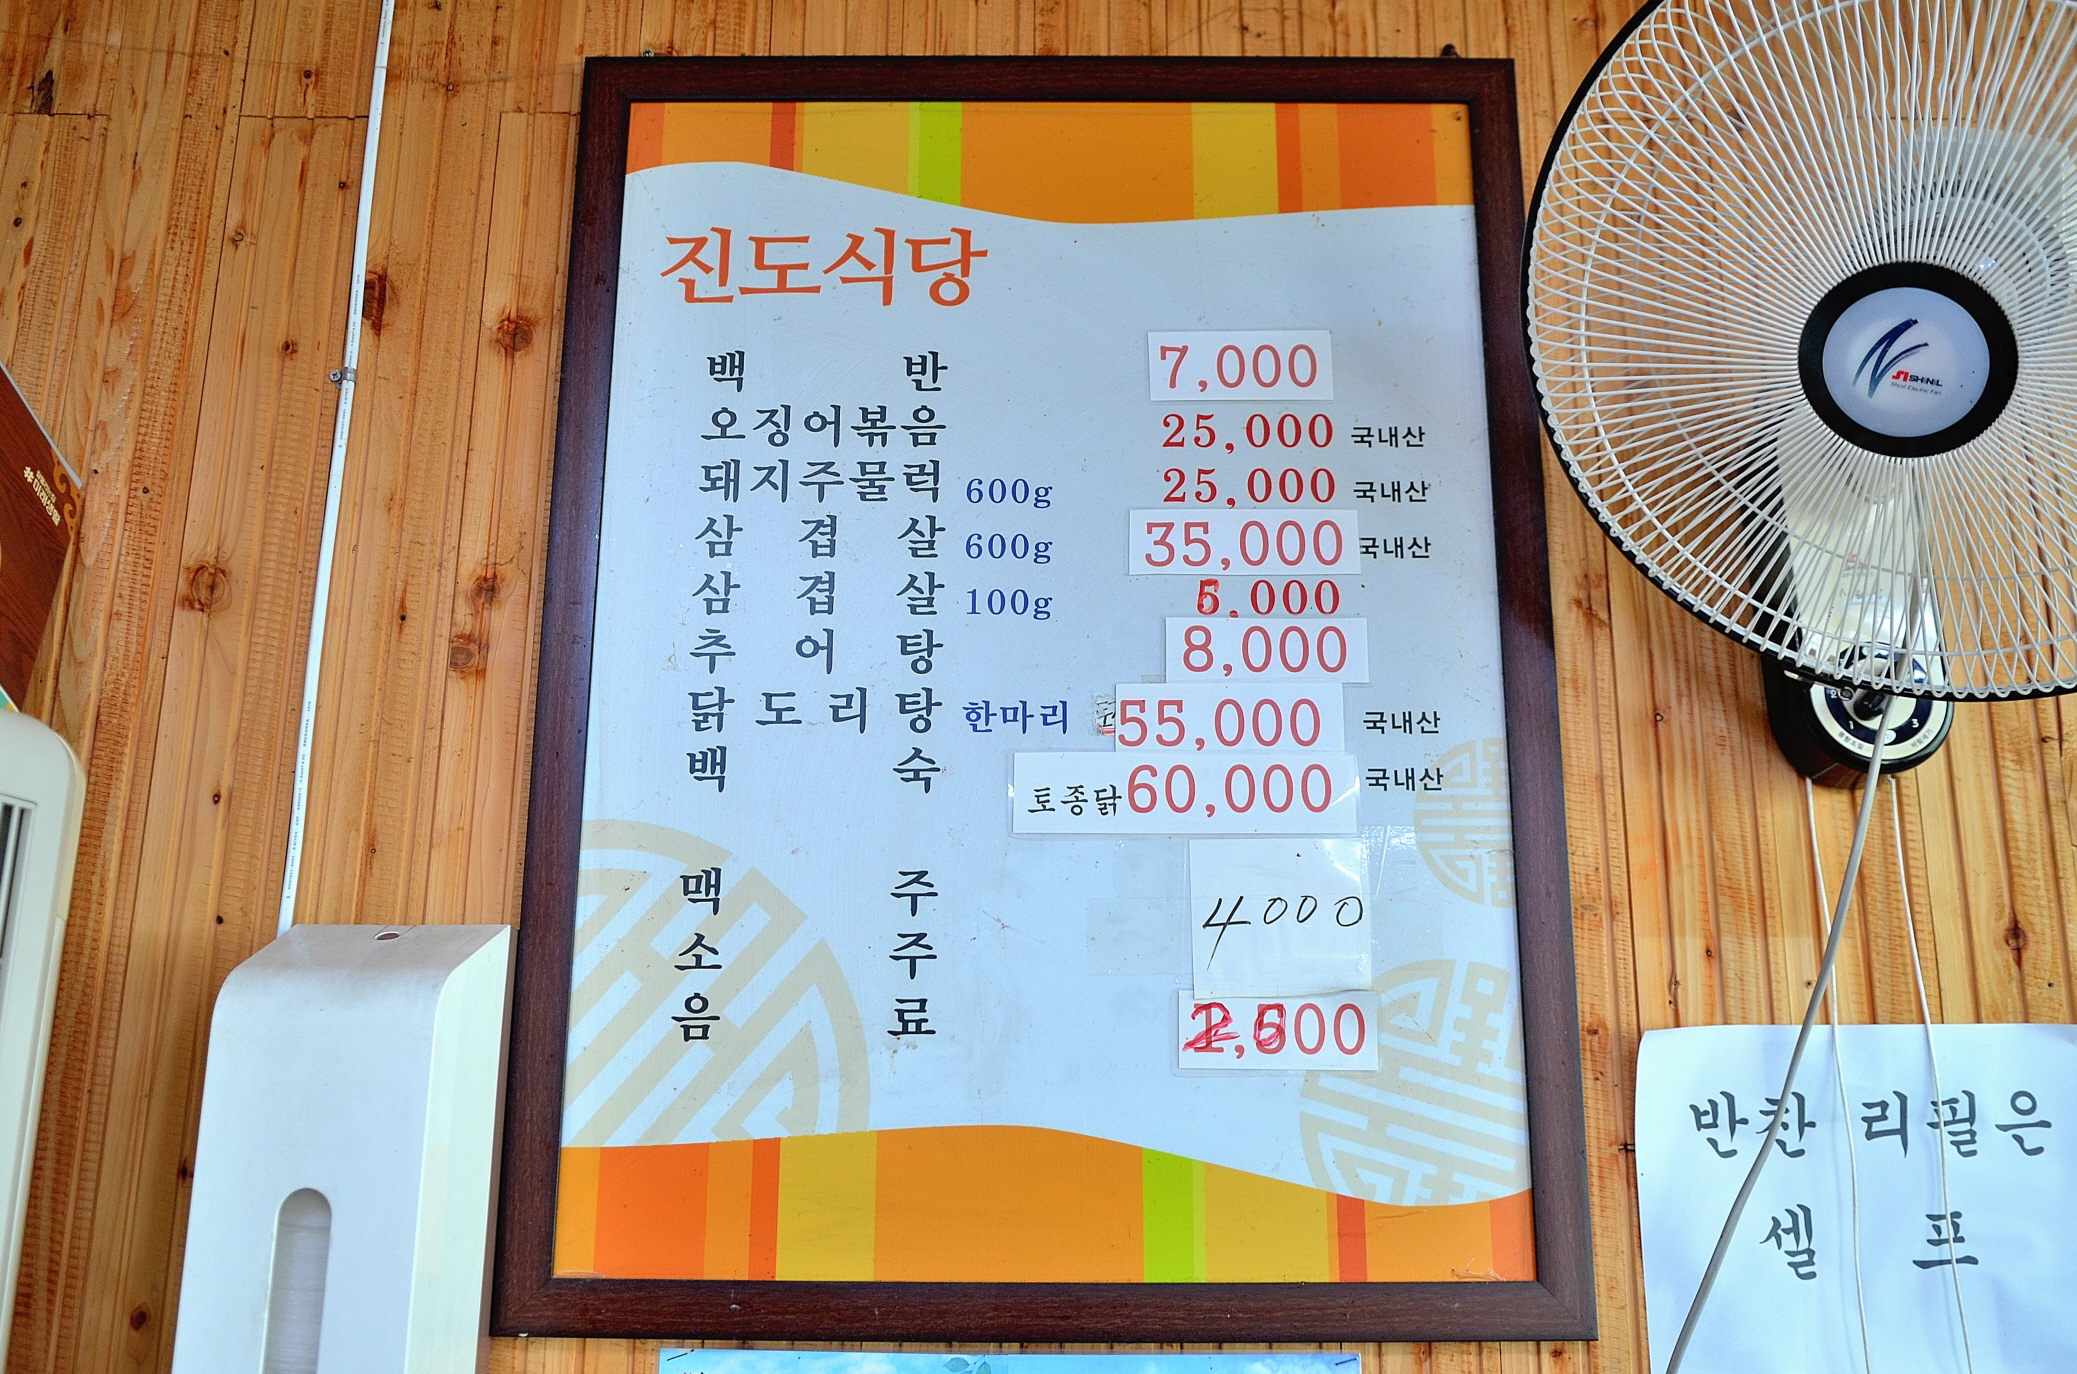 진도식당
백반 7,000
오징어볶음 25,000 국내산
돼지주물럭 600g 25,000 국내산
삼겹살 600g 35,000 국내산
삼겹살 100g 6,000
추어탕 8,000
닭도리탕 한마리 55,000 국내산
백숙 토종닭 60,000 국내산
맥주 4000
소주
음료 2,000
SHINIL
Shinil Electric Fan
반찬 리필은
셀프
#미래생명
1
3